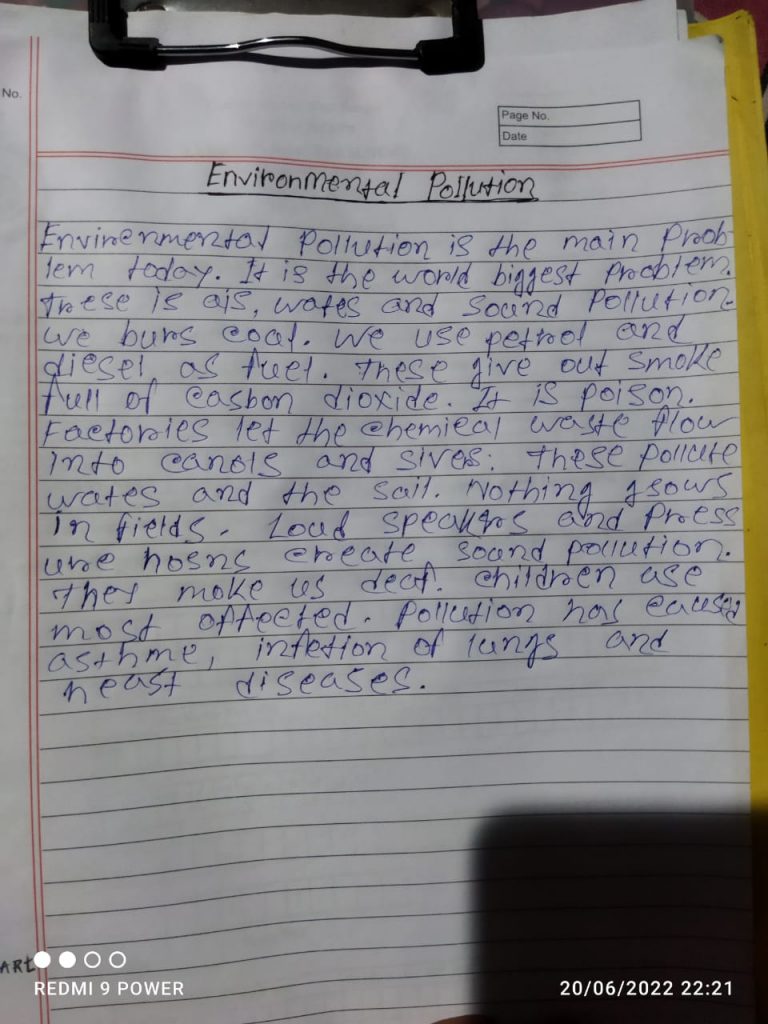 No.
Page No.
Date
Environmental Pollution
Environmental Pollution is the main Prob-
lem today. It is the world biggest Problem.
these is ais, wates and Sound Pollution.
we burs coal. we use petrol and
diesel as fuel. these give out smoke
full of casbon dioxide. It is poison.
Factories let the chemical waste flow
into canols and sives. these pollute
wates and the sail. Nothing gsows
in fields. Loud speakers and Press
ure hosns create sound pollution.
they make us deaf. children ase
most affected. Pollution has caused
asthme, infetion of lungs and
heast diseases.
ART
REDMI 9 POWER
20/06/2022 22:21